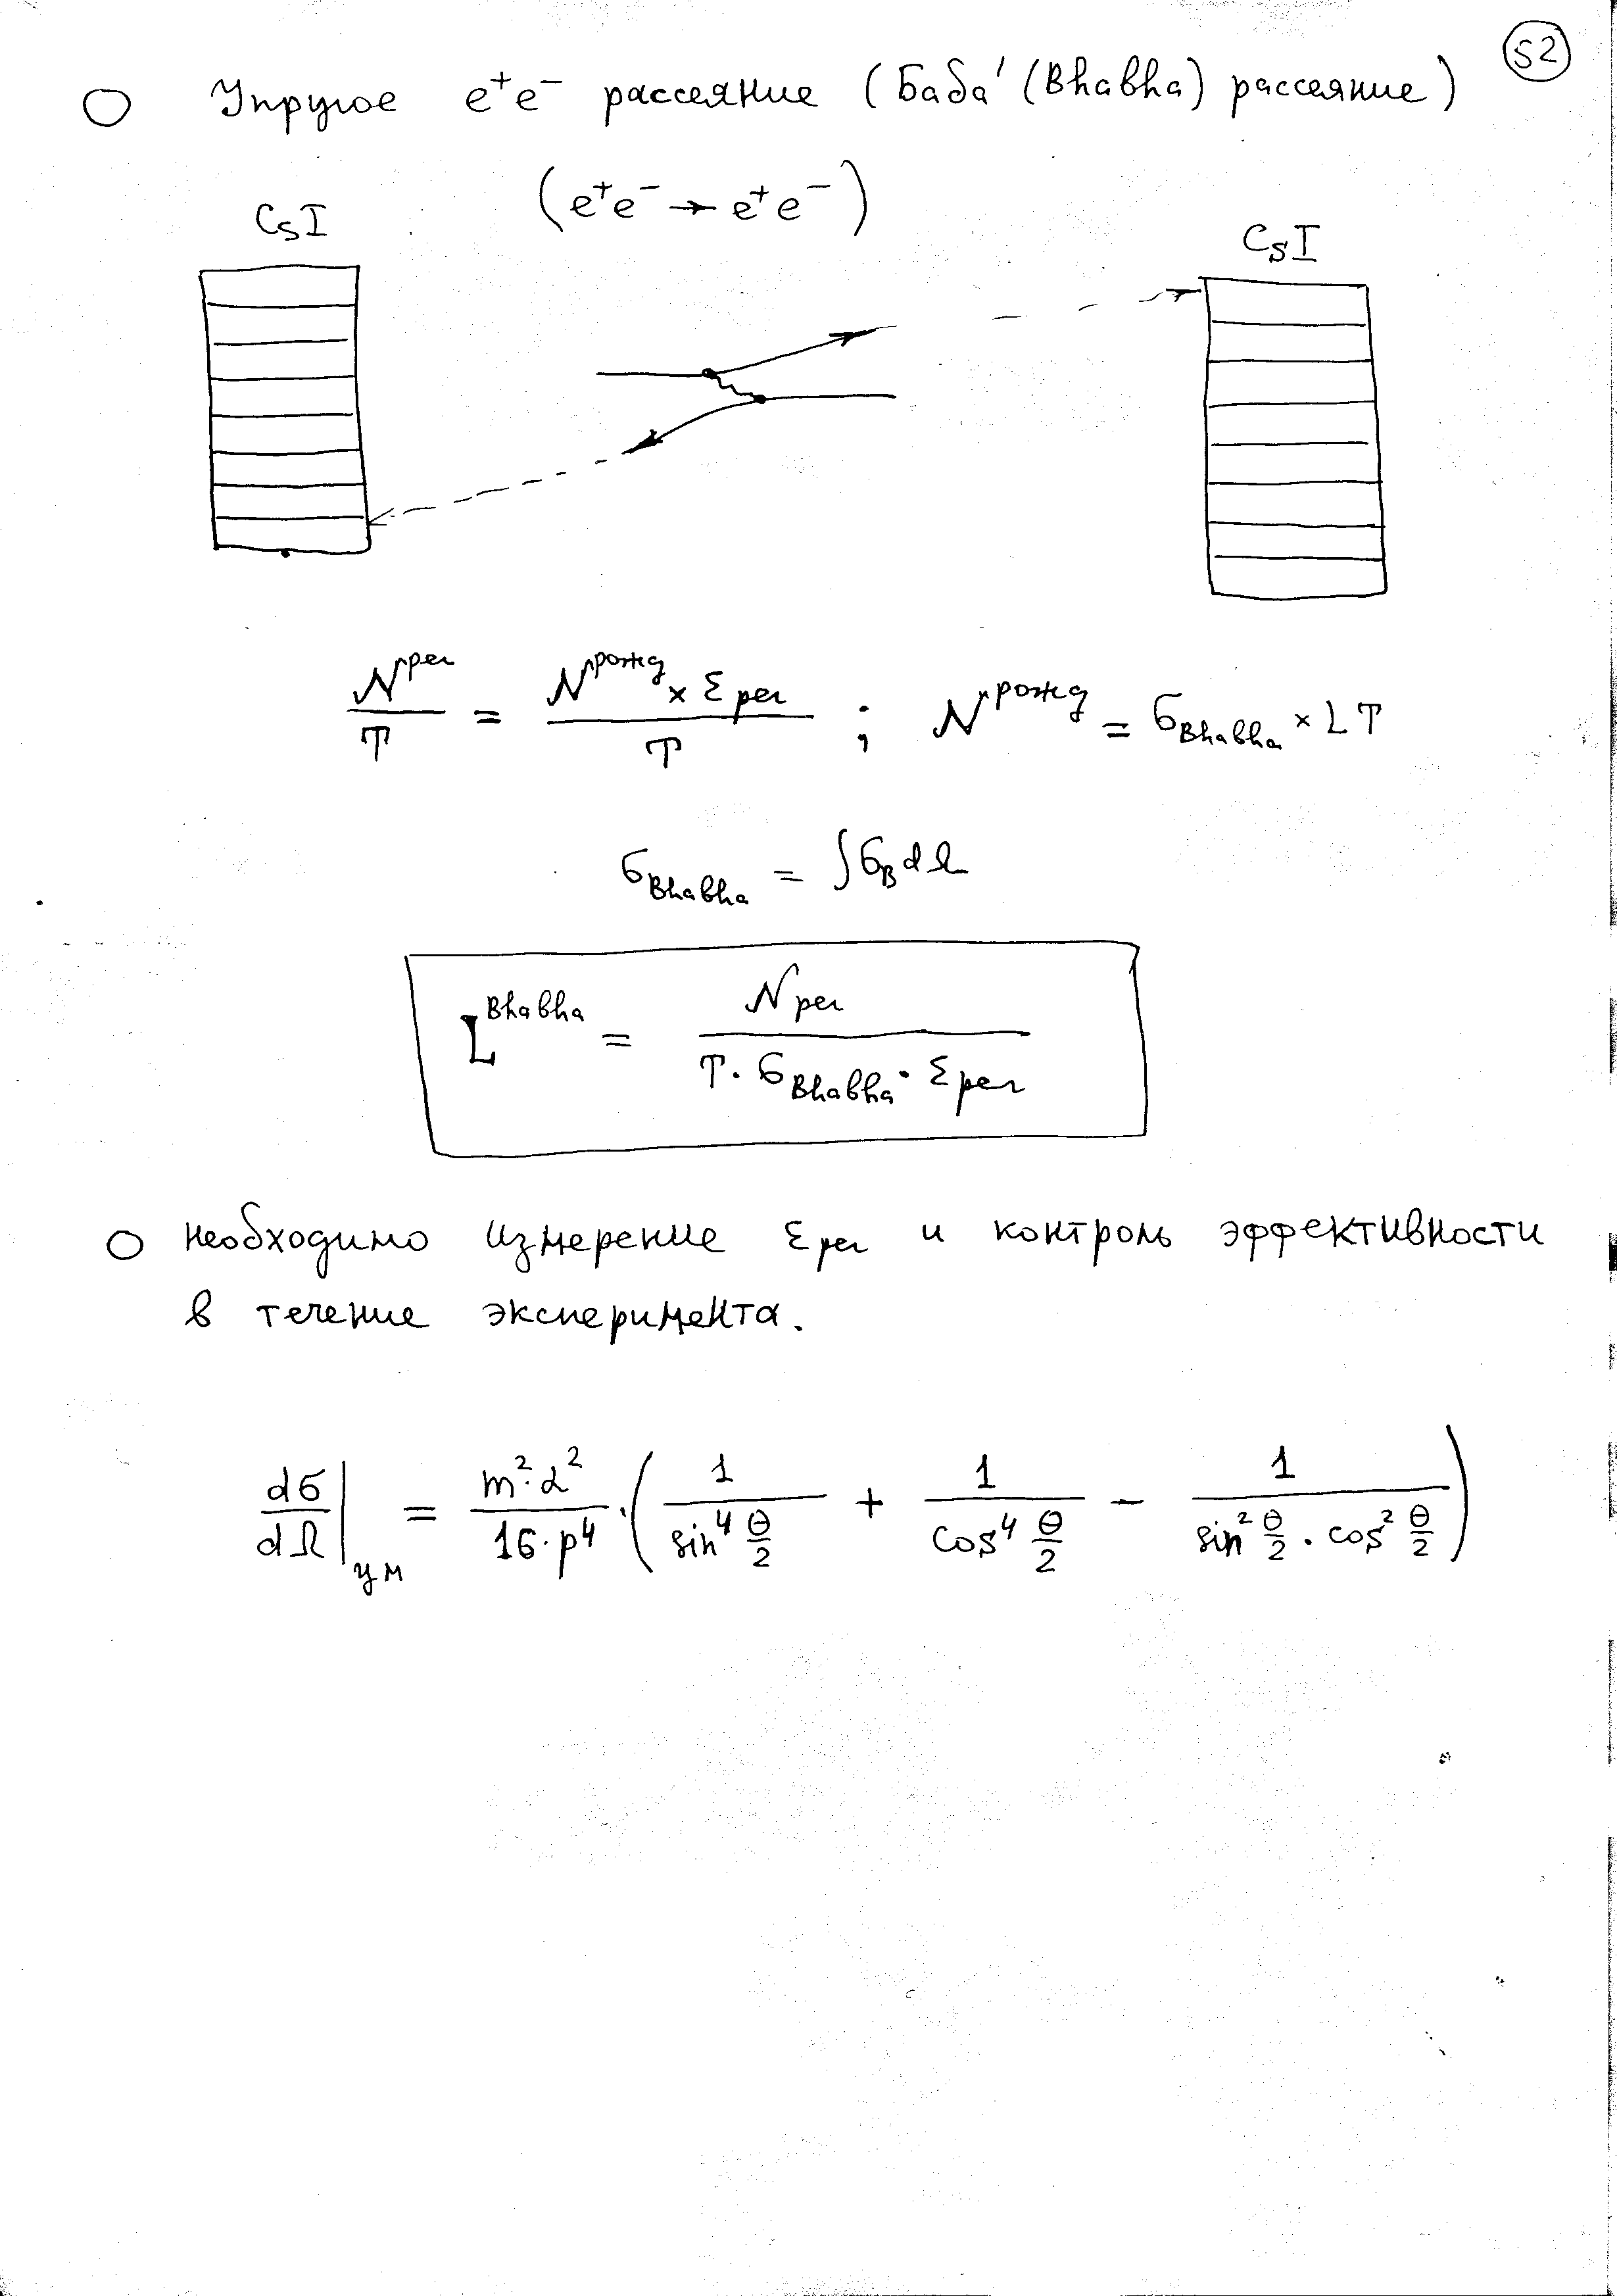 52
○ Упругое e⁺e⁻ рассеяние (Баба' (Bhabha) рассеяние)
(e⁺e⁻ → e⁺e⁻)
CsI
CsI
N^рег / T = N^рожд × ε рег / T ; N^рожд = σ_Bhabha × L T
σ_Bhabha = ∫ σ_B dΩ
L^Bhabha = N рег / T · σ_Bhabha · ε рег
○ Необходимо измерение ε рег и контроль эффективности
в течение эксперимента.
dσ/dΩ |_цм = m²·α² / 16·p⁴ · ( 1 / sin⁴ θ/2 + 1 / cos⁴ θ/2 − 1 / sin² θ/2 · cos² θ/2 )